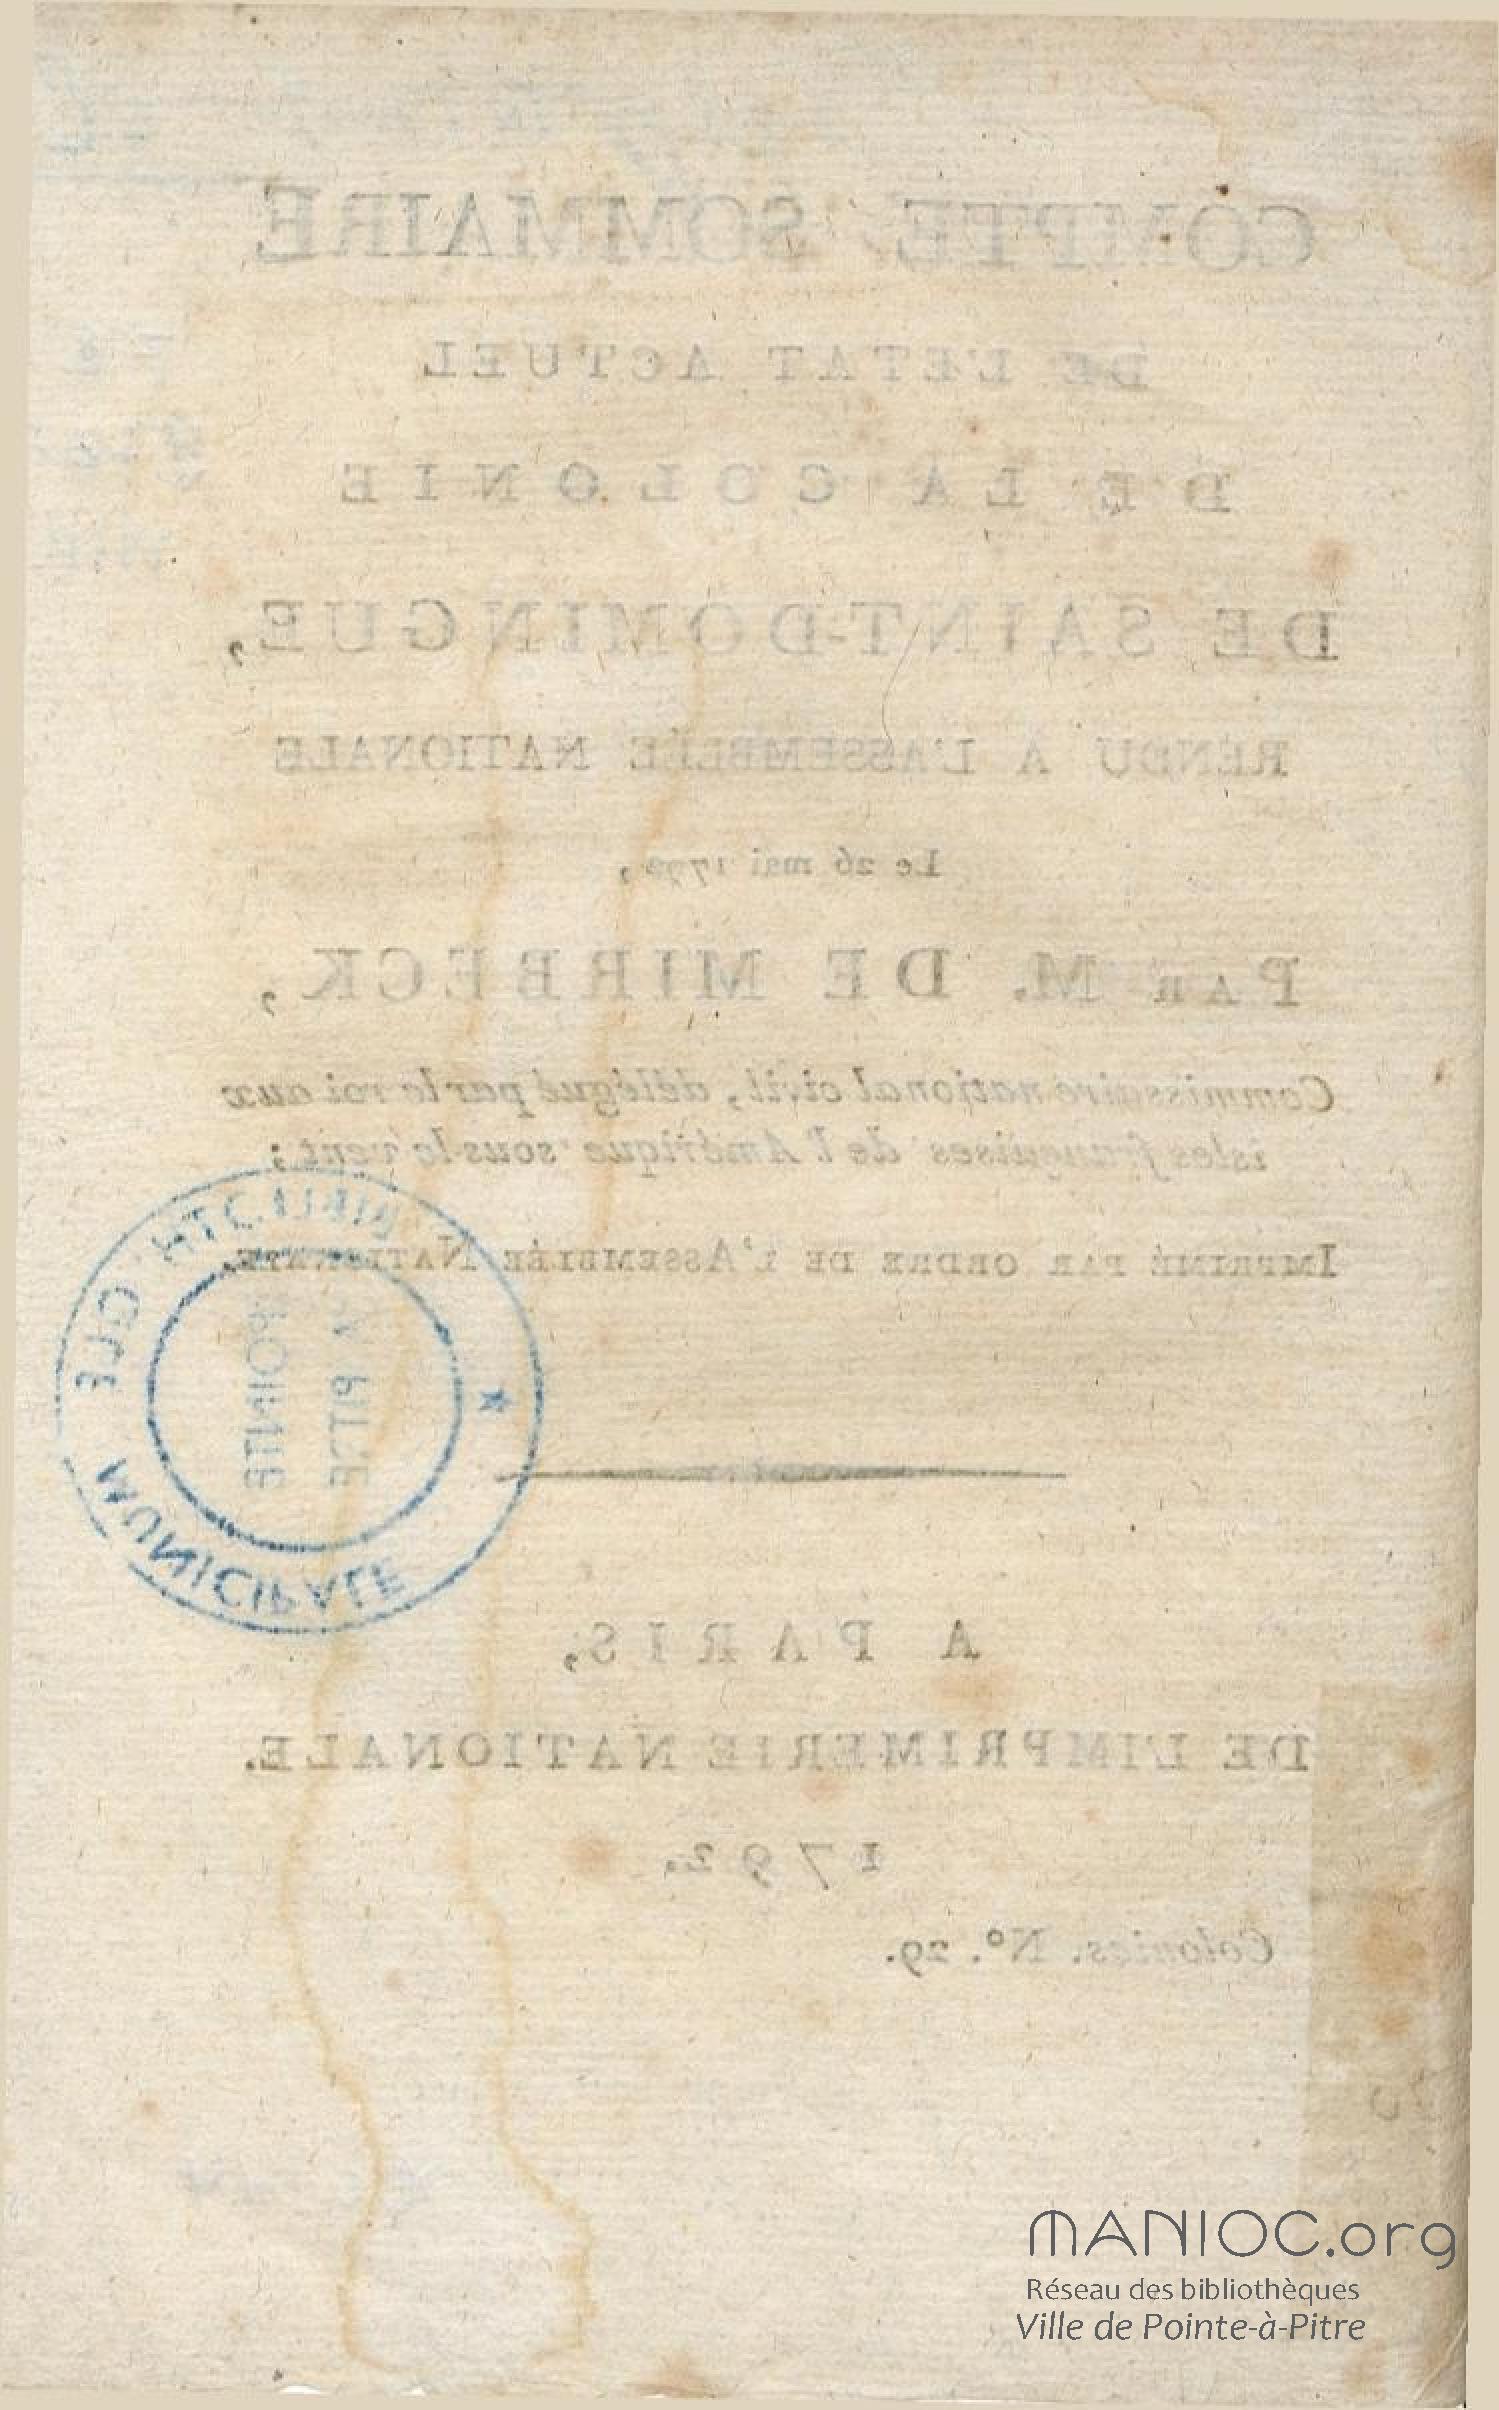 COMPTE SOMMAIRE
DE L'ETAT ACTUEL
DE LA COLONIE
DE SAINT-DOMINGUE,
RENDU A L'ASSEMBLÉE NATIONALE
Le 26 mai 1792,
PAR M. DE MIRBECK,
Commissaire national civil, délégué par le roi aux
isles françaises de l'Amérique sous le vent ;
IMPRIMÉ PAR ORDRE DE L'ASSEMBLÉE NATIONALE.
BIBLIOTHEQUE
MUNICIPALE
POINTE
A PITRE
A PARIS,
DE L'IMPRIMERIE NATIONALE.
1792.
Colonies. N°. 29.
MANIOC.org
Réseau des bibliothèques
Ville de Pointe-à-Pitre